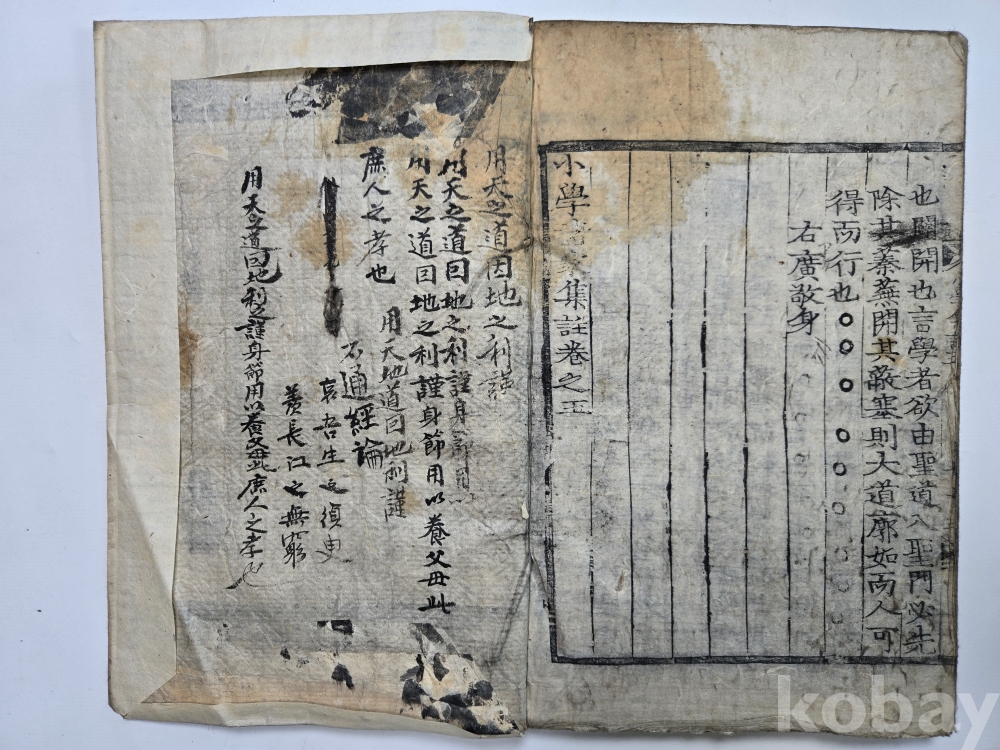 也闢開也言學者欲由聖道入聖門必先
除其蓁蕪開其蔽塞則大道廓如而人可
得而行也
右廣敬身
小學諸家集註卷之五
用天之道因地之利謹
用天之道因地之利謹身節用以
用天之道因地之利謹身節用以養父母此
庶人之孝也
用天地道因地利謹
不通經論
哀吾生之須臾
羨長江之無窮
用天之道因地利之謹身節用以養父母此庶人之孝也
kobay